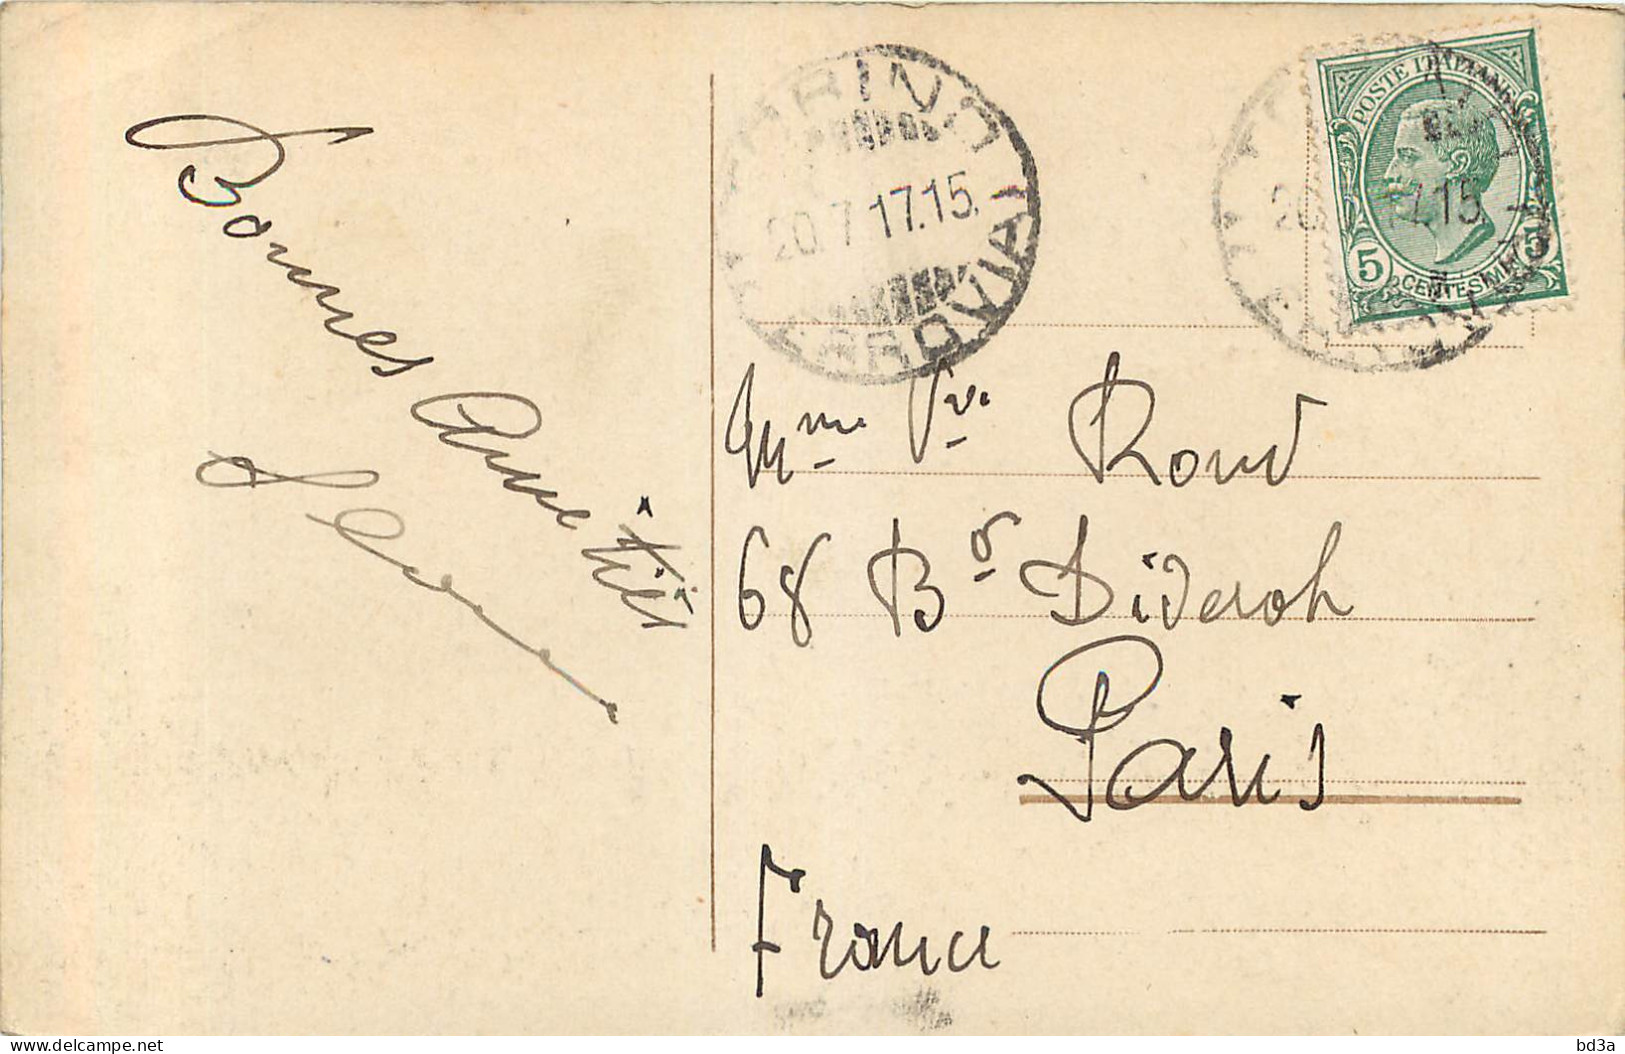 Bonnes Amitiés
TORINO
20.7 17.15.
FERROVIA
POSTE ITALIANE
5 CENTESIMI 5
15
Mme Vve Rond
68 Bd Diderot
Paris
France
delcampe.net
bd3a